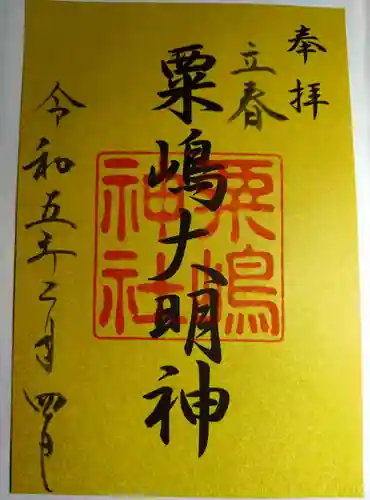 奉拝
立春
粟嶋大明神
粟嶋神社
令和五年二月四日